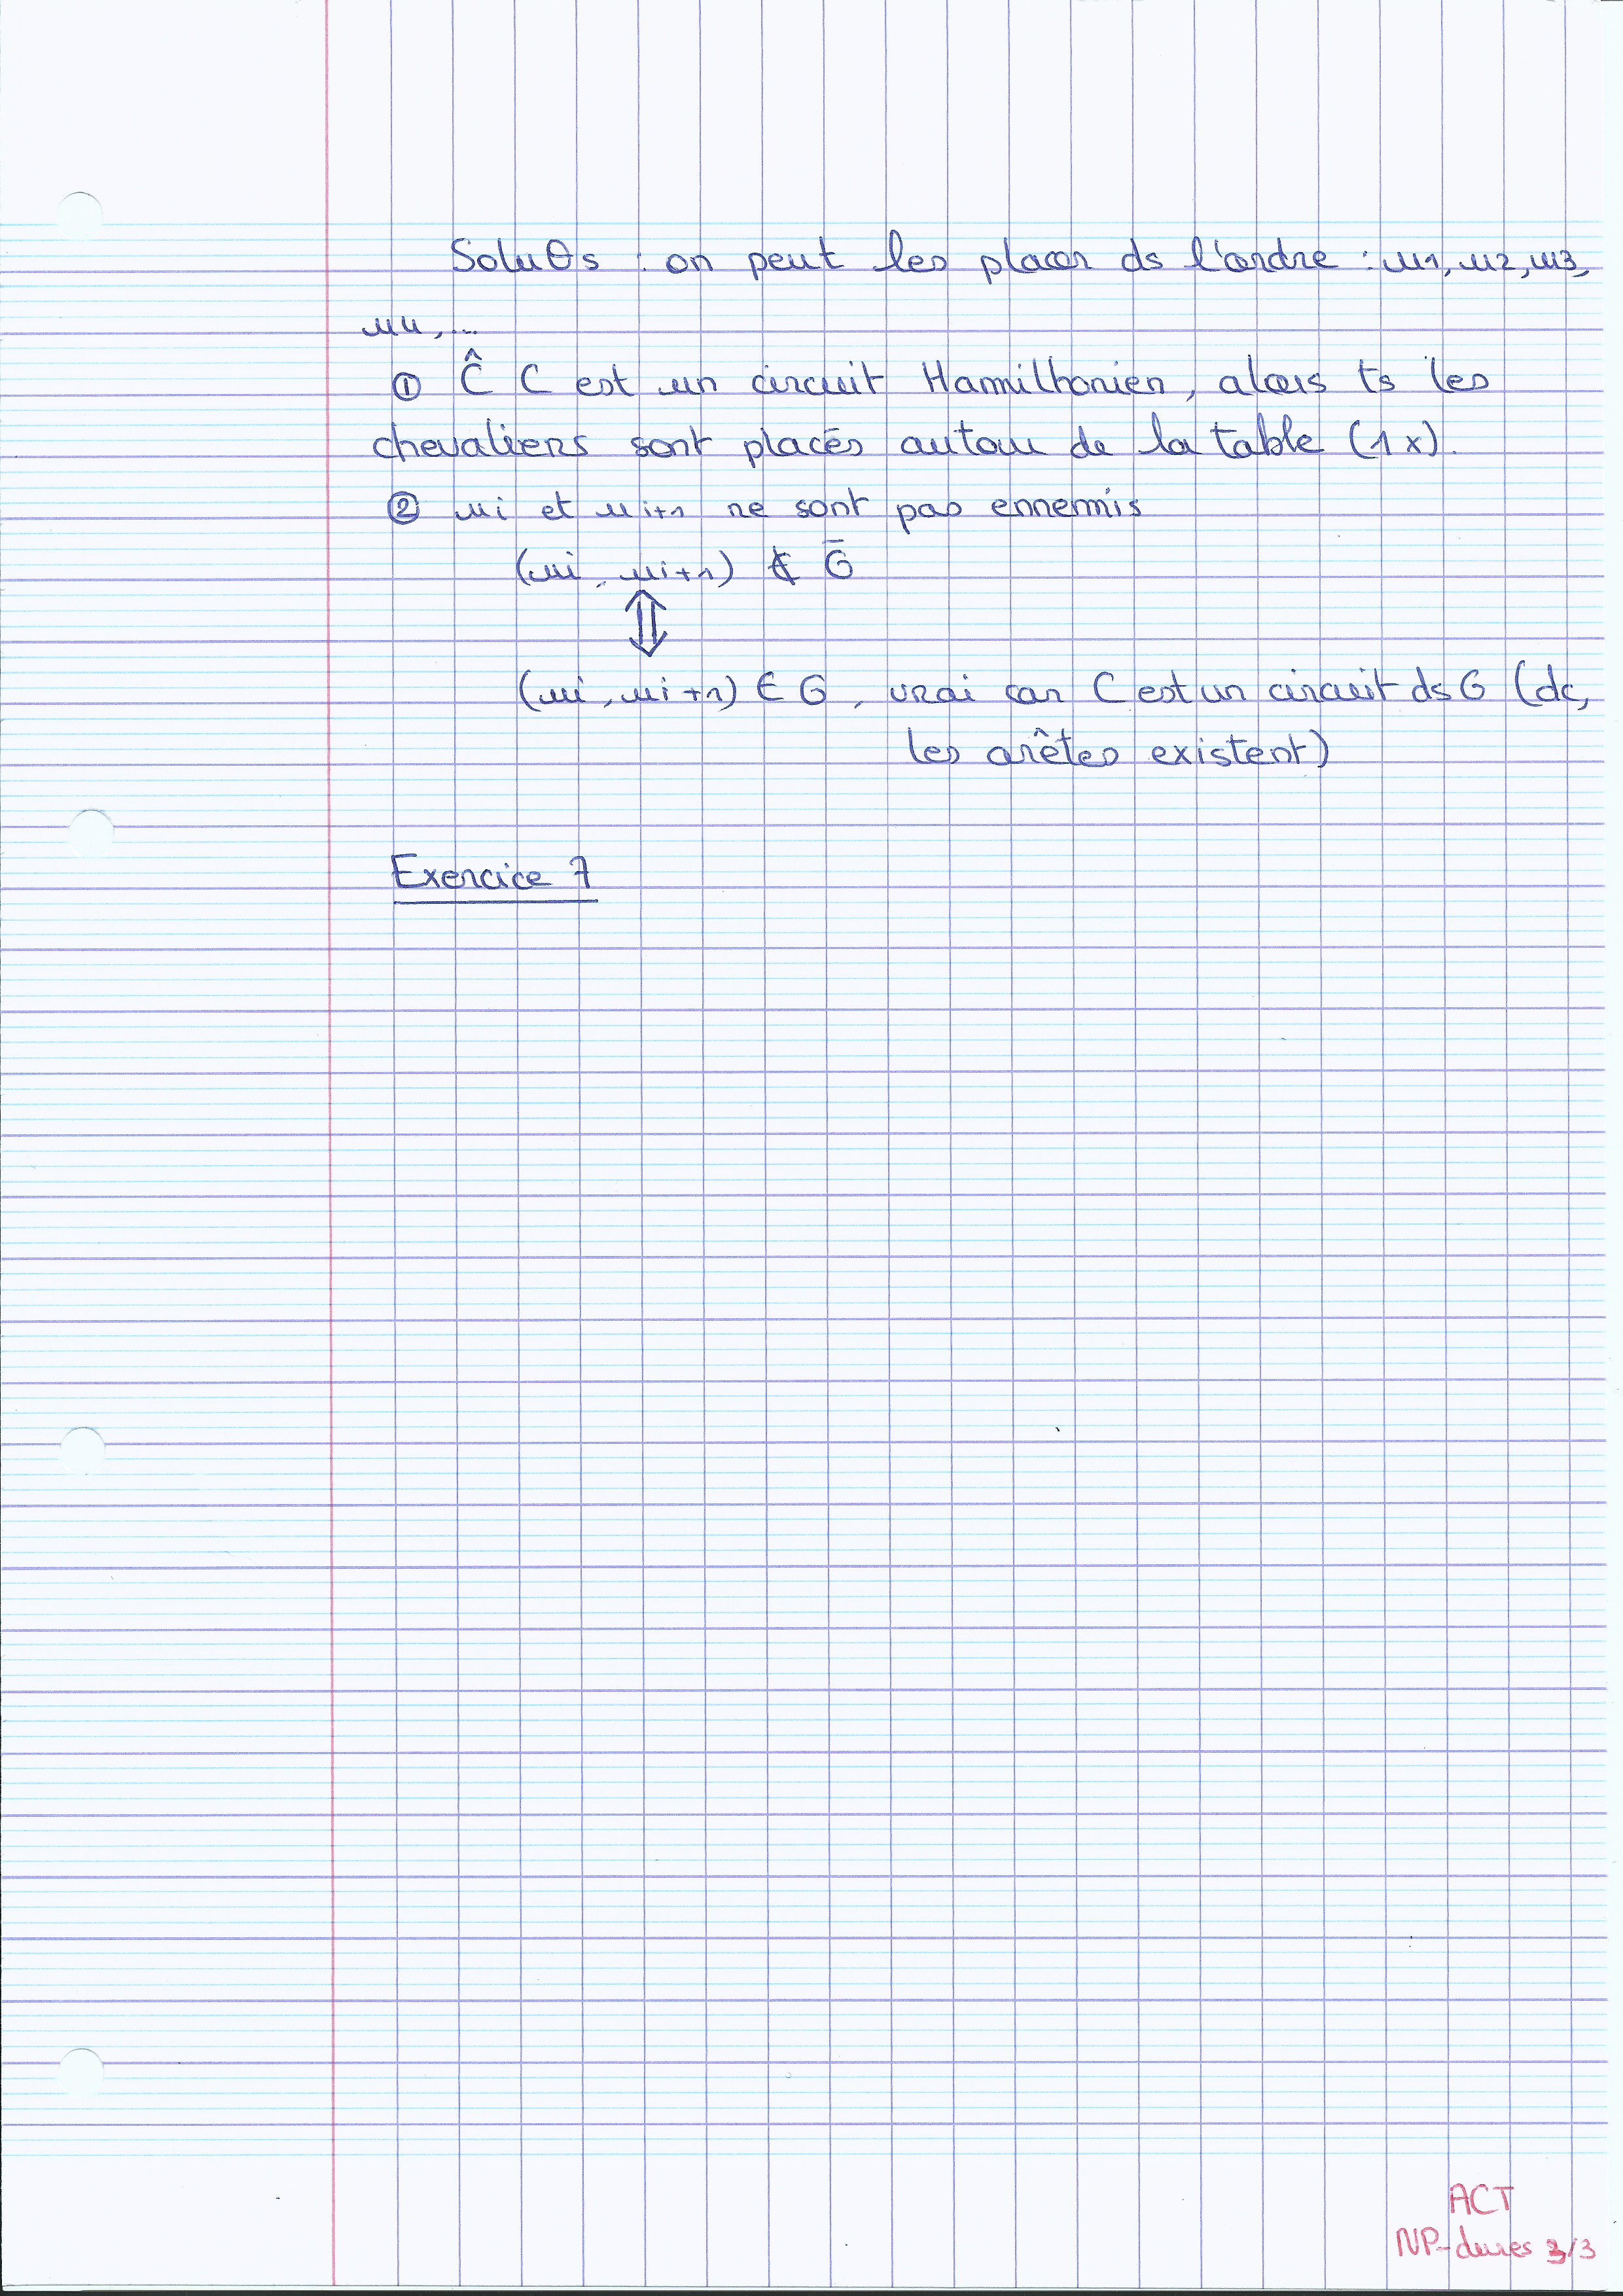 Soluθs : on peut les placer ds l'ordre : u1, u2, u3,
u4, ...
① Ĉ C est un circuit Hamilthonien, alors ts les
chevaliers sont placés autour de la table (1x).
② ui et ui+1 ne sont pas ennemis
(ui, ui+1) ∉ Ḡ
⇕
(ui, ui+1) ∈ G, vrai car C est un circuit ds G (dc,
les arêtes existent)
Exercice 7
ACT
NP-dures 3/3